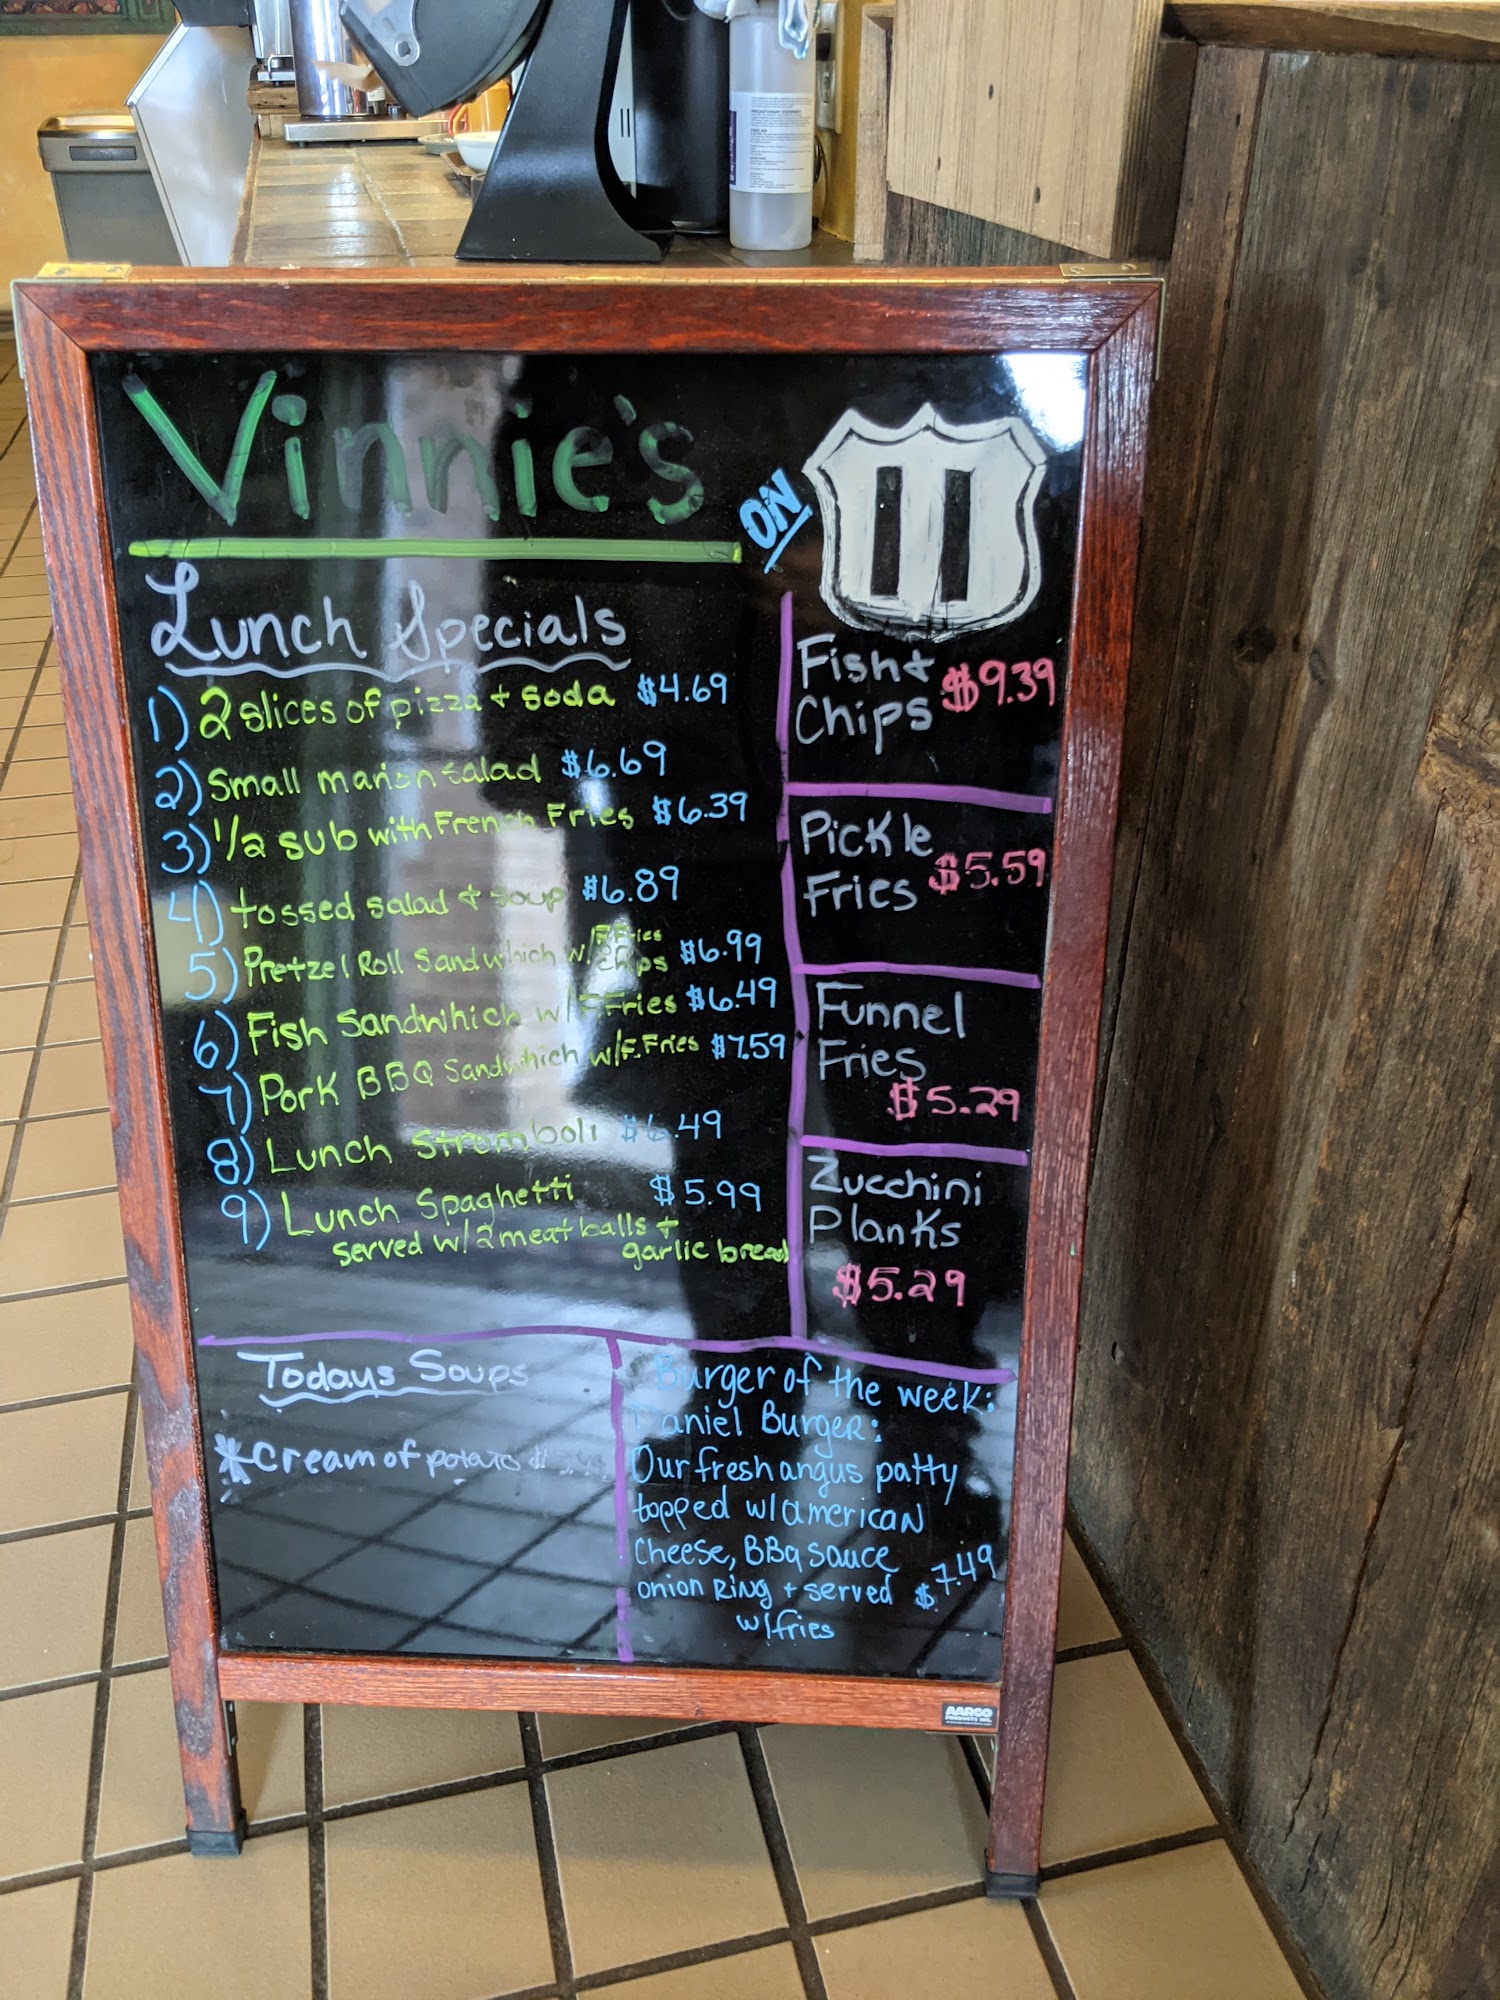 Vinnie's
ON 11
Lunch Specials
1) 2 slices of pizza + soda $4.69
2) Small marion salad $6.69
3) 1/2 sub with French Fries $6.39
4) tossed salad + soup $6.89
5) Pretzel Roll Sandwhich w/ F.Fries chips $6.99
6) Fish Sandwhich w/ F Fries $6.49
7) Pork BBQ Sandwhich w/F.Fries $7.59
8) Lunch Stromboli $6.49
9) Lunch Spaghetti $5.99
served w/2 meatballs +
garlic bread
Fish +
Chips $9.39
Pickle
Fries $5.59
Funnel
Fries
$5.29
Zucchini
Planks
$5.29
Todays Soups
*Cream of potato $
Burger of the week:
Daniel Burger:
Our fresh angus patty
topped w/american
cheese, BBq sauce
onion Ring + served $7.49
w/fries
AARCO
PRODUCTS INC.
PRECAUTIONARY STATEMENTS
FIRST AID